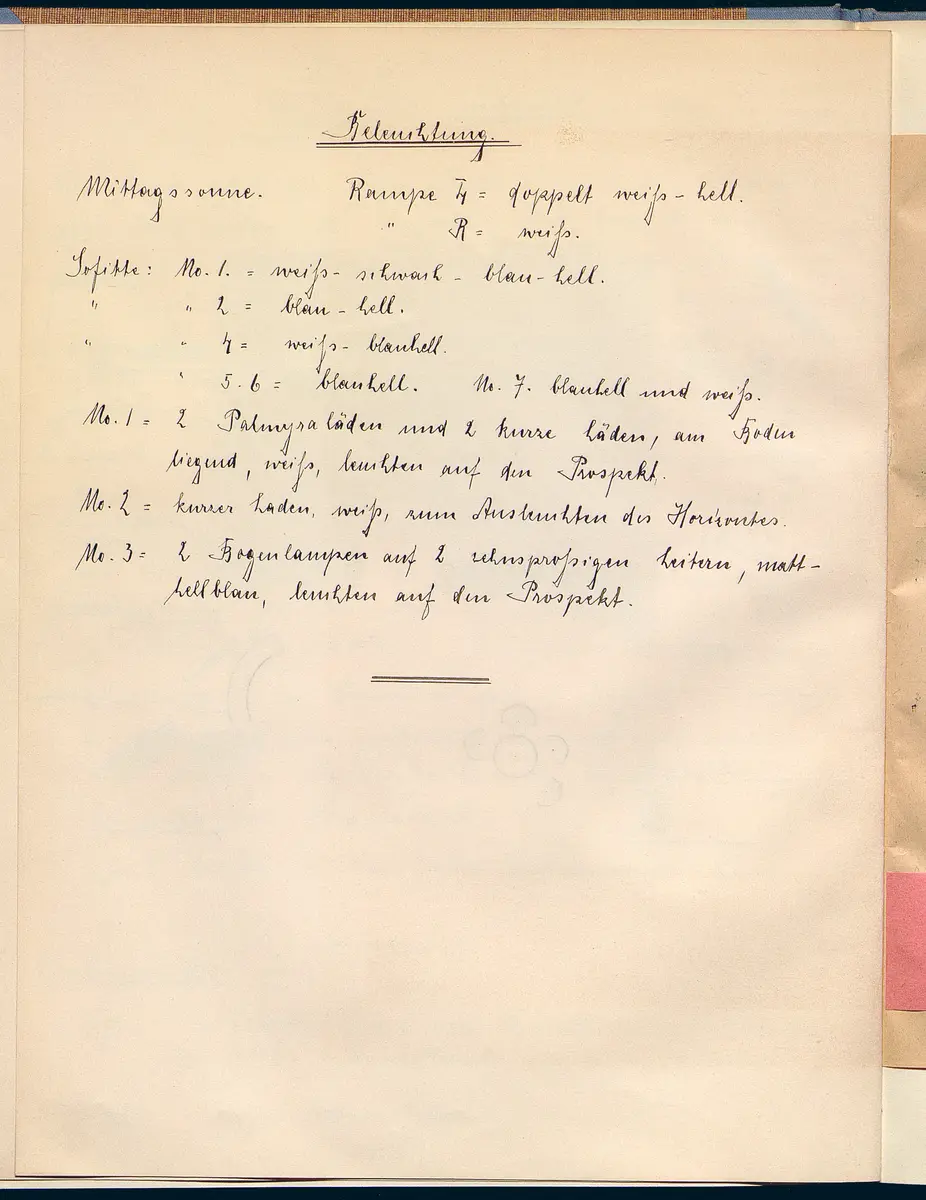 Beleuchtung.
Mittagssonne. Rampe L = doppelt weiß - hell.
" R = weiß.
Sofitte: No. 1. = weiß - schwach - blau - hell.
" " 2 = blau - hell.
" " 4 = weiß - blauhell.
" 5. 6 = blauhell. No. 7. blauhell und weiß.
No. 1 = 2 Palmyraläden und 2 kurze Läden, am Boden
liegend, weiß, leuchten auf den Prospekt.
No. 2 = kurzer Laden, weiß, zum Ausleuchten des Horizontes.
No. 3 = 2 Bogenlampen auf 2 zehnsproßigen Leitern, matt-
hellblau, leuchten auf den Prospekt.